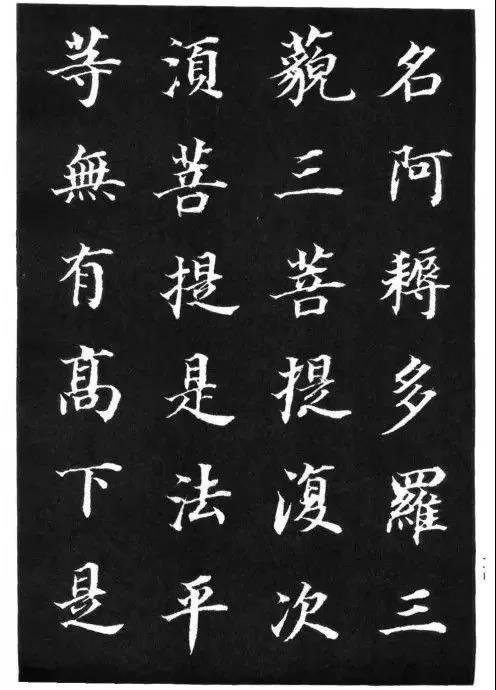 名阿耨多羅三
藐三菩提復次
須菩提是法平
等無有髙下是